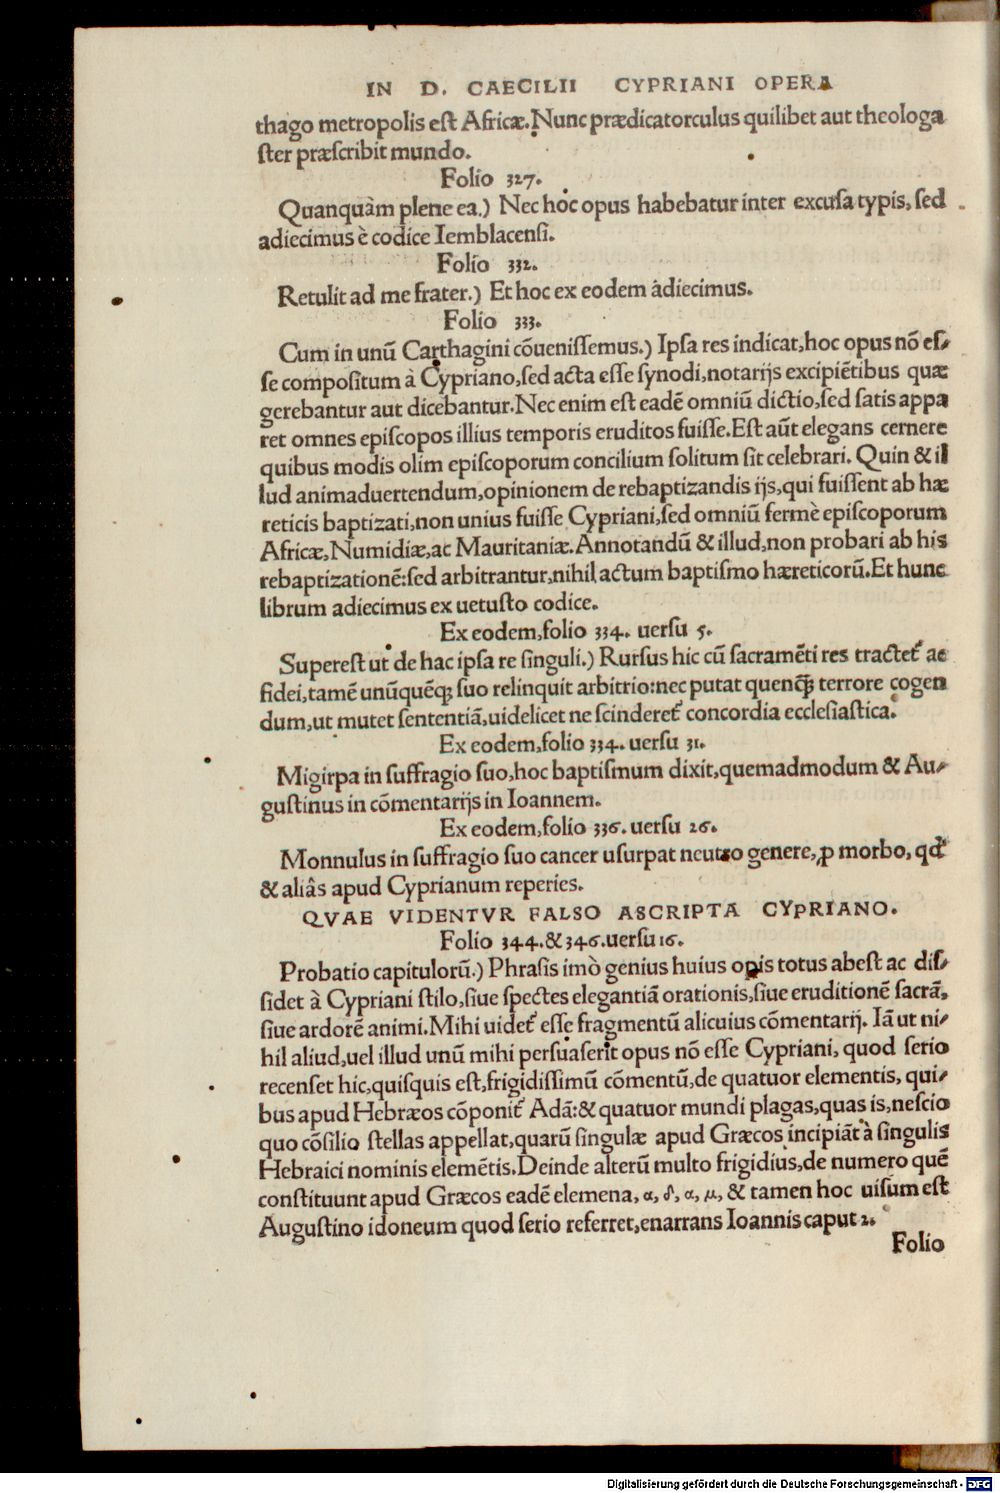 IN D. CAECILII CYPRIANI OPERA
thago metropolis eſt Africæ. Nunc prædicatorculus quilibet aut theologa
ſter præſcribit mundo.
Folio 327.
Quanquàm plene ea.) Nec hoc opus habebatur inter excuſa typis, ſed
adiecimus è codice Iemblacenſi.
Folio 332.
Retulit ad me frater.) Et hoc ex eodem ádiecimus.
Folio 333.
Cum in unũ Carthagini cõueniſſemus.) Ipſa res indicat, hoc opus nõ eſ-
ſe compoſitum à Cypriano, ſed acta eſſe ſynodi, notarijs excipiẽtibus quæ
gerebantur aut dicebantur. Nec enim eſt eadẽ omniũ dictio, ſed ſatis appa
ret omnes epiſcopos illius temporis eruditos fuiſſe. Eſt aũt elegans cernere
quibus modis olim epiſcoporum concilium ſolitum ſit celebrari. Quin & il
lud animaduertendum, opinionem de rebaptizandis ijs, qui fuiſſent ab hæ
reticis baptizati, non unius fuiſſe Cypriani, ſed omniũ fermè epiſcoporum
Africæ, Numidiæ, ac Mauritaniæ. Annotandũ & illud, non probari ab his
rebaptizationẽ: ſed arbitrantur, nihil actum baptiſmo hæreticorũ. Et hunc
librum adiecimus ex uetuſto codice.
Ex eodem, folio 334. uerſu 5.
Supereſt ut de hac ipſa re ſinguli.) Rurſus hic cũ ſacramẽti res tractet᷑ ac
fidei, tamẽ unũquẽq; ſuo relinquit arbitrio: nec putat quenq̃; terrore cogen
dum, ut mutet ſententiã, uidelicet ne ſcinderet᷑ concordia eccleſiaſtica.
Ex eodem, folio 334. uerſu 31.
Migirpa in ſuffragio ſuo, hoc baptiſmum dixit, quemadmodum & Au-
guſtinus in cõmentarijs in Ioannem.
Ex eodem, folio 336. uerſu 26.
Monnulus in ſuffragio ſuo cancer uſurpat neutro genere, ꝓ morbo, qd᷑
& aliâs apud Cyprianum reperies.
QVAE VIDENTVR FALSO ASCRIPTA CYPRIANO.
Folio 344. & 346. uerſu 16.
Probatio capitulorũ.) Phraſis imò genius huius opis totus abeſt ac diſ-
ſidet à Cypriani ſtilo, ſiue ſpectes elegantiã orationis, ſiue eruditionẽ ſacrã,
ſiue ardorẽ animi. Mihi uidet᷑ eſſe fragmentũ alicuius cõmentarij. Iã ut ni-
hil aliud, uel illud unũ mihi perſuaſerit opus nõ eſſe Cypriani, quod ſerio
recenſet hic, quiſquis eſt, frigidiſſimũ cõmentũ, de quatuor elementis, qui-
bus apud Hebræos cõponit᷑ Adã: & quatuor mundi plagas, quas is, neſcio
quo cõſilio ſtellas appellat, quarũ ſingulæ apud Græcos incipiãt à ſingulis
Hebraici nominis elemẽtis. Deinde alterũ multo frigidius, de numero quẽ
conſtituunt apud Græcos eadẽ elemena, α, δ, α, μ, & tamen hoc uiſum eſt
Auguſtino idoneum quod ſerio referret, enarrans Ioannis caput 2.
Folio
Digitalisierung gefördert durch die Deutsche Forschungsgemeinschaft - DFG